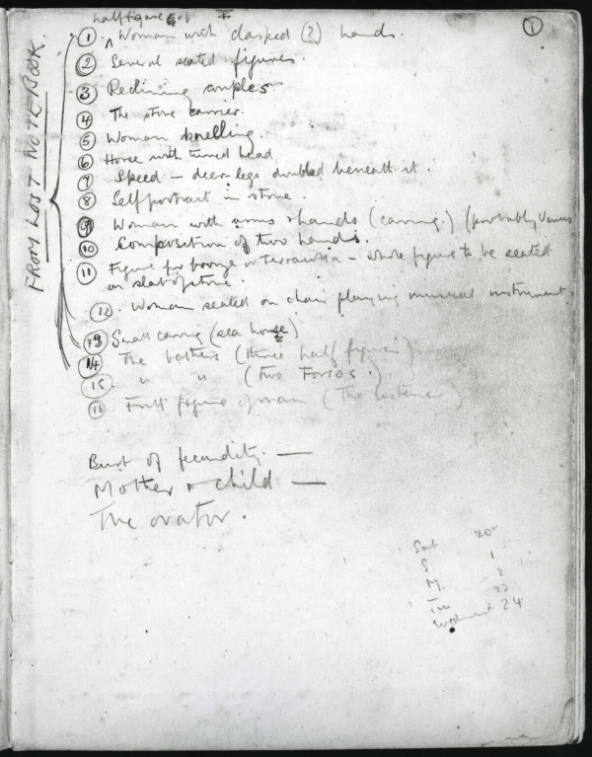 half figure
① Woman with clasped (?) hands.
①
② Several seated figures
③ Reclining couples
④ The stone carrier.
⑤ Woman knelling.
⑥ Horse with turned head
⑦ Speed – deer legs doubled beneath it.
⑧ Self portrait in stone.
⑨ Woman with arms & hands (carving.) (probably Venus
⑩ Composition of two hands.
⑪ Figure for bronze or terracotta – whole figure to be seated
on slab of stone.
⑫ Woman seated on chair playing musical instrument.
⑬ Small carving (sea horse)
⑭ The bathers (three half figures)
⑮ " " (Two Torsos.)
⑯ Full figure of man (The listener)
FROM LOST NOTE-BOOK.
Bust of fecundity. —
Mother & child —
The orator.
Sat 20
S 1
M. 2
Tu 23
Wednes 24